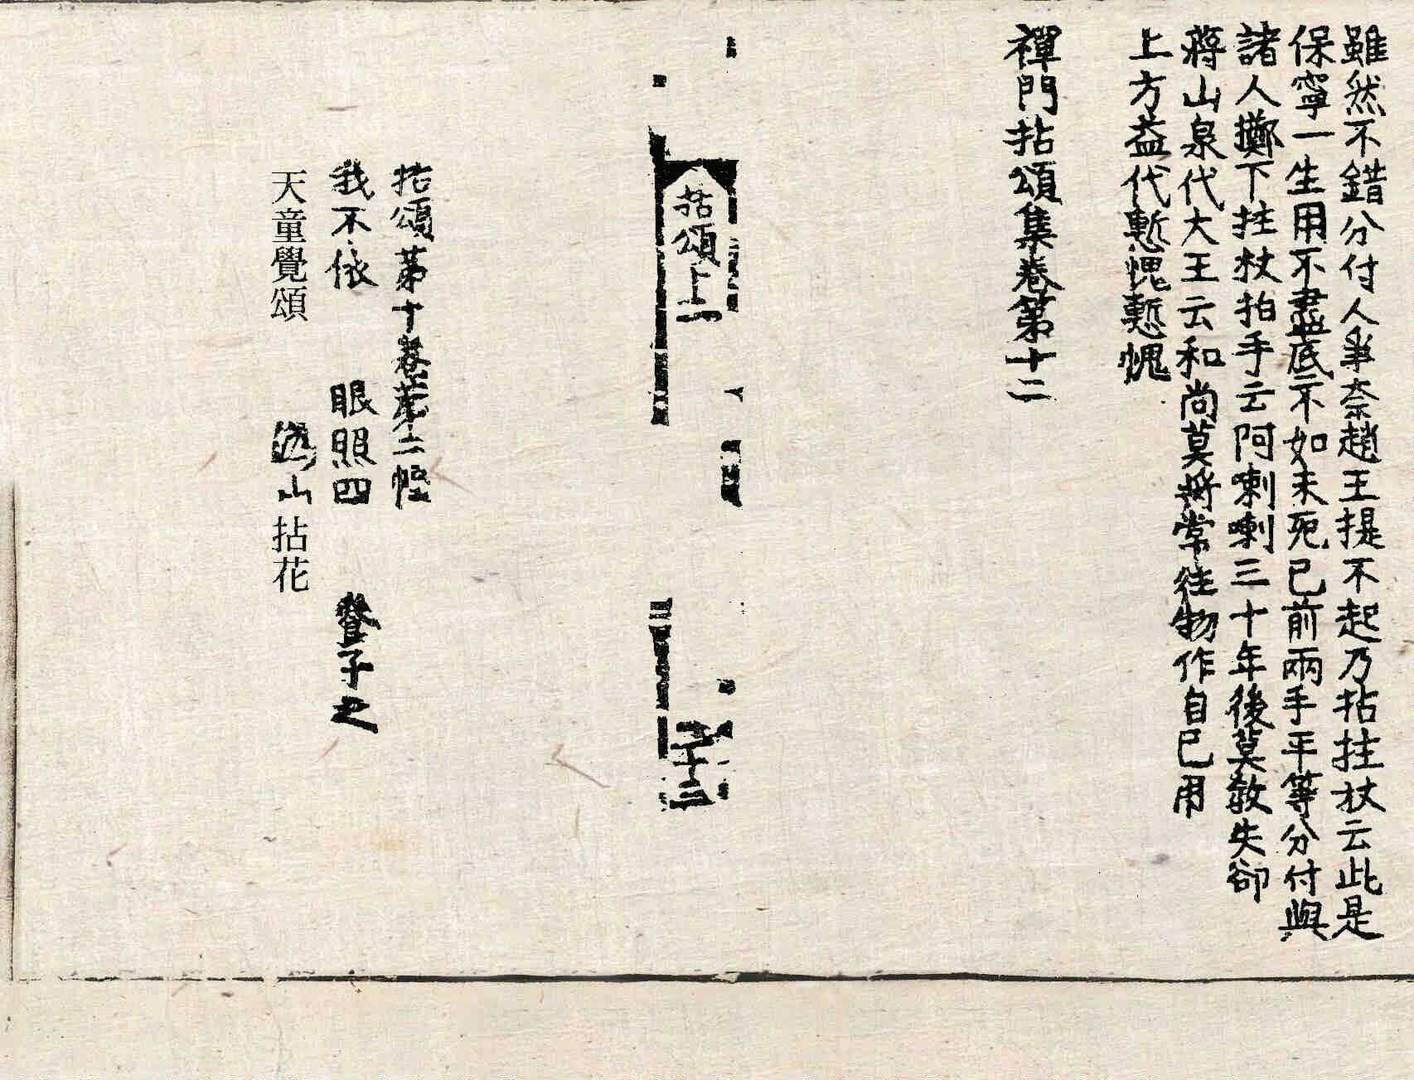 雖然不錯分付人爭奈趙王提不起乃拈拄杖云此是
保寧一生用不盡底不如未死已前兩手平等分付與
諸人擲下拄杖拍手云阿喇喇三十年後莫教失卻
蔣山泉代大王云和尚莫將常住物作自已用
上方益代慙愧慙愧
禪門拈頌集卷第十二
拈頌上二
二十三
拈頌第十卷第二幅
我不依 眼照四 登子之
天童覺頌 山拈花